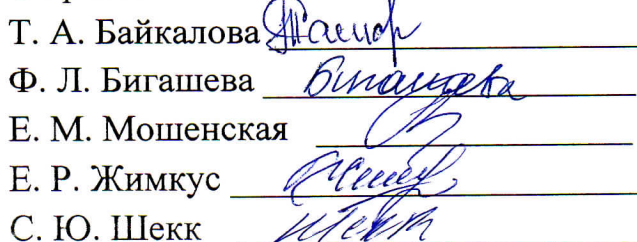 Т. А. Байкалова
Ф. Л. Бигашева Бигашева
Е. М. Мошенская
Е. Р. Жимкус
С. Ю. Шекк Шекк